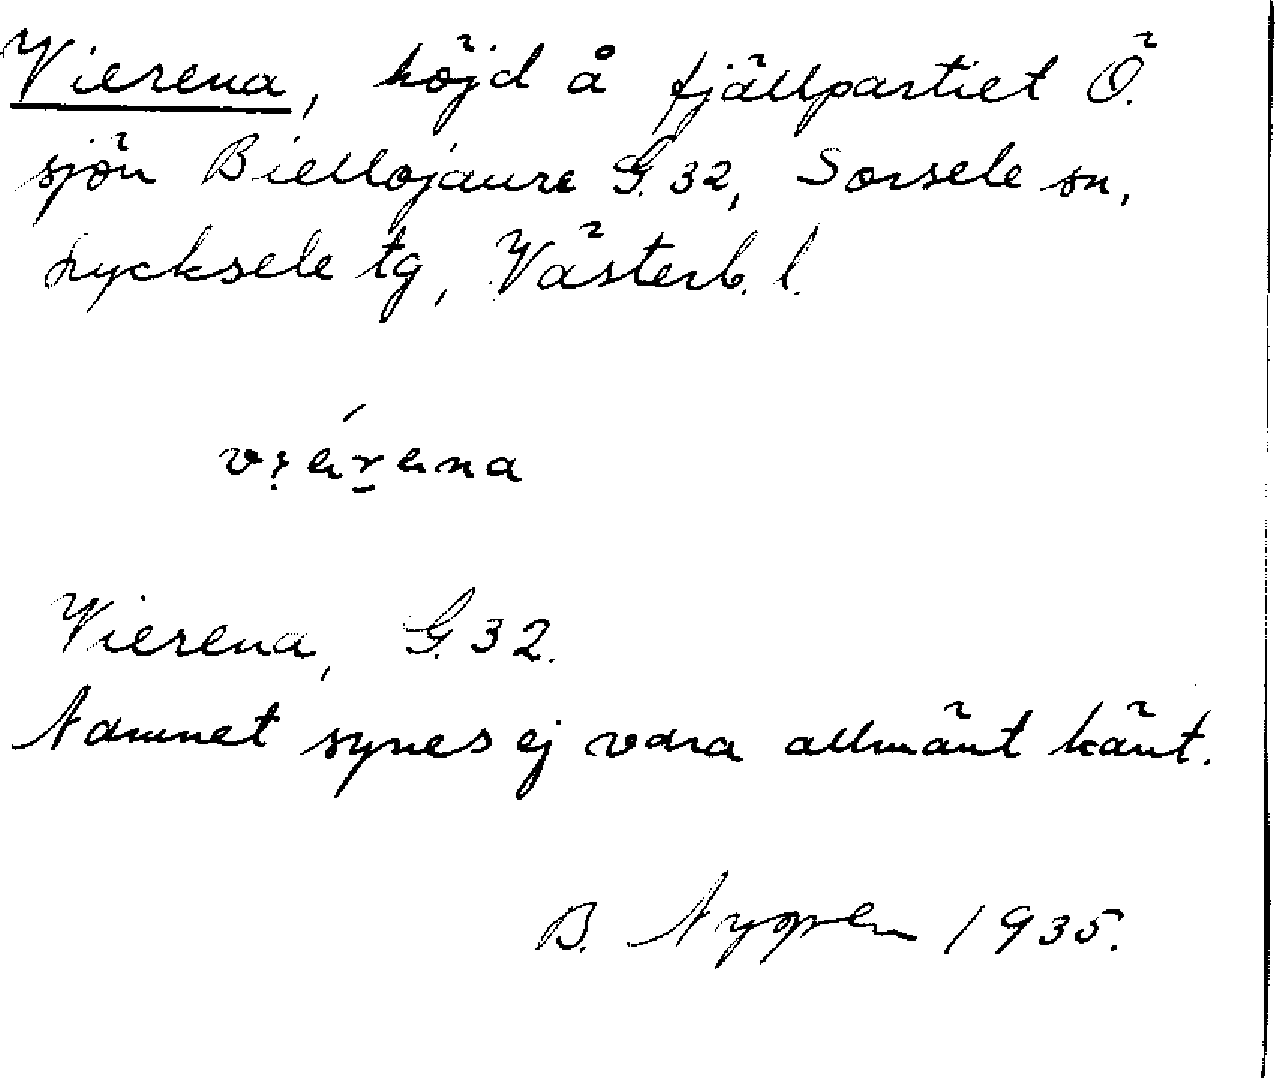 Vierena, höjd å fjällpartiet Ö.
sjön Biellojaure G.32, Sorsele sn,
Lycksele tg, Västerb. l.
Vierena, G.32.
Namnet synes ej vara allmänt känt.
B. Nygren 1935.